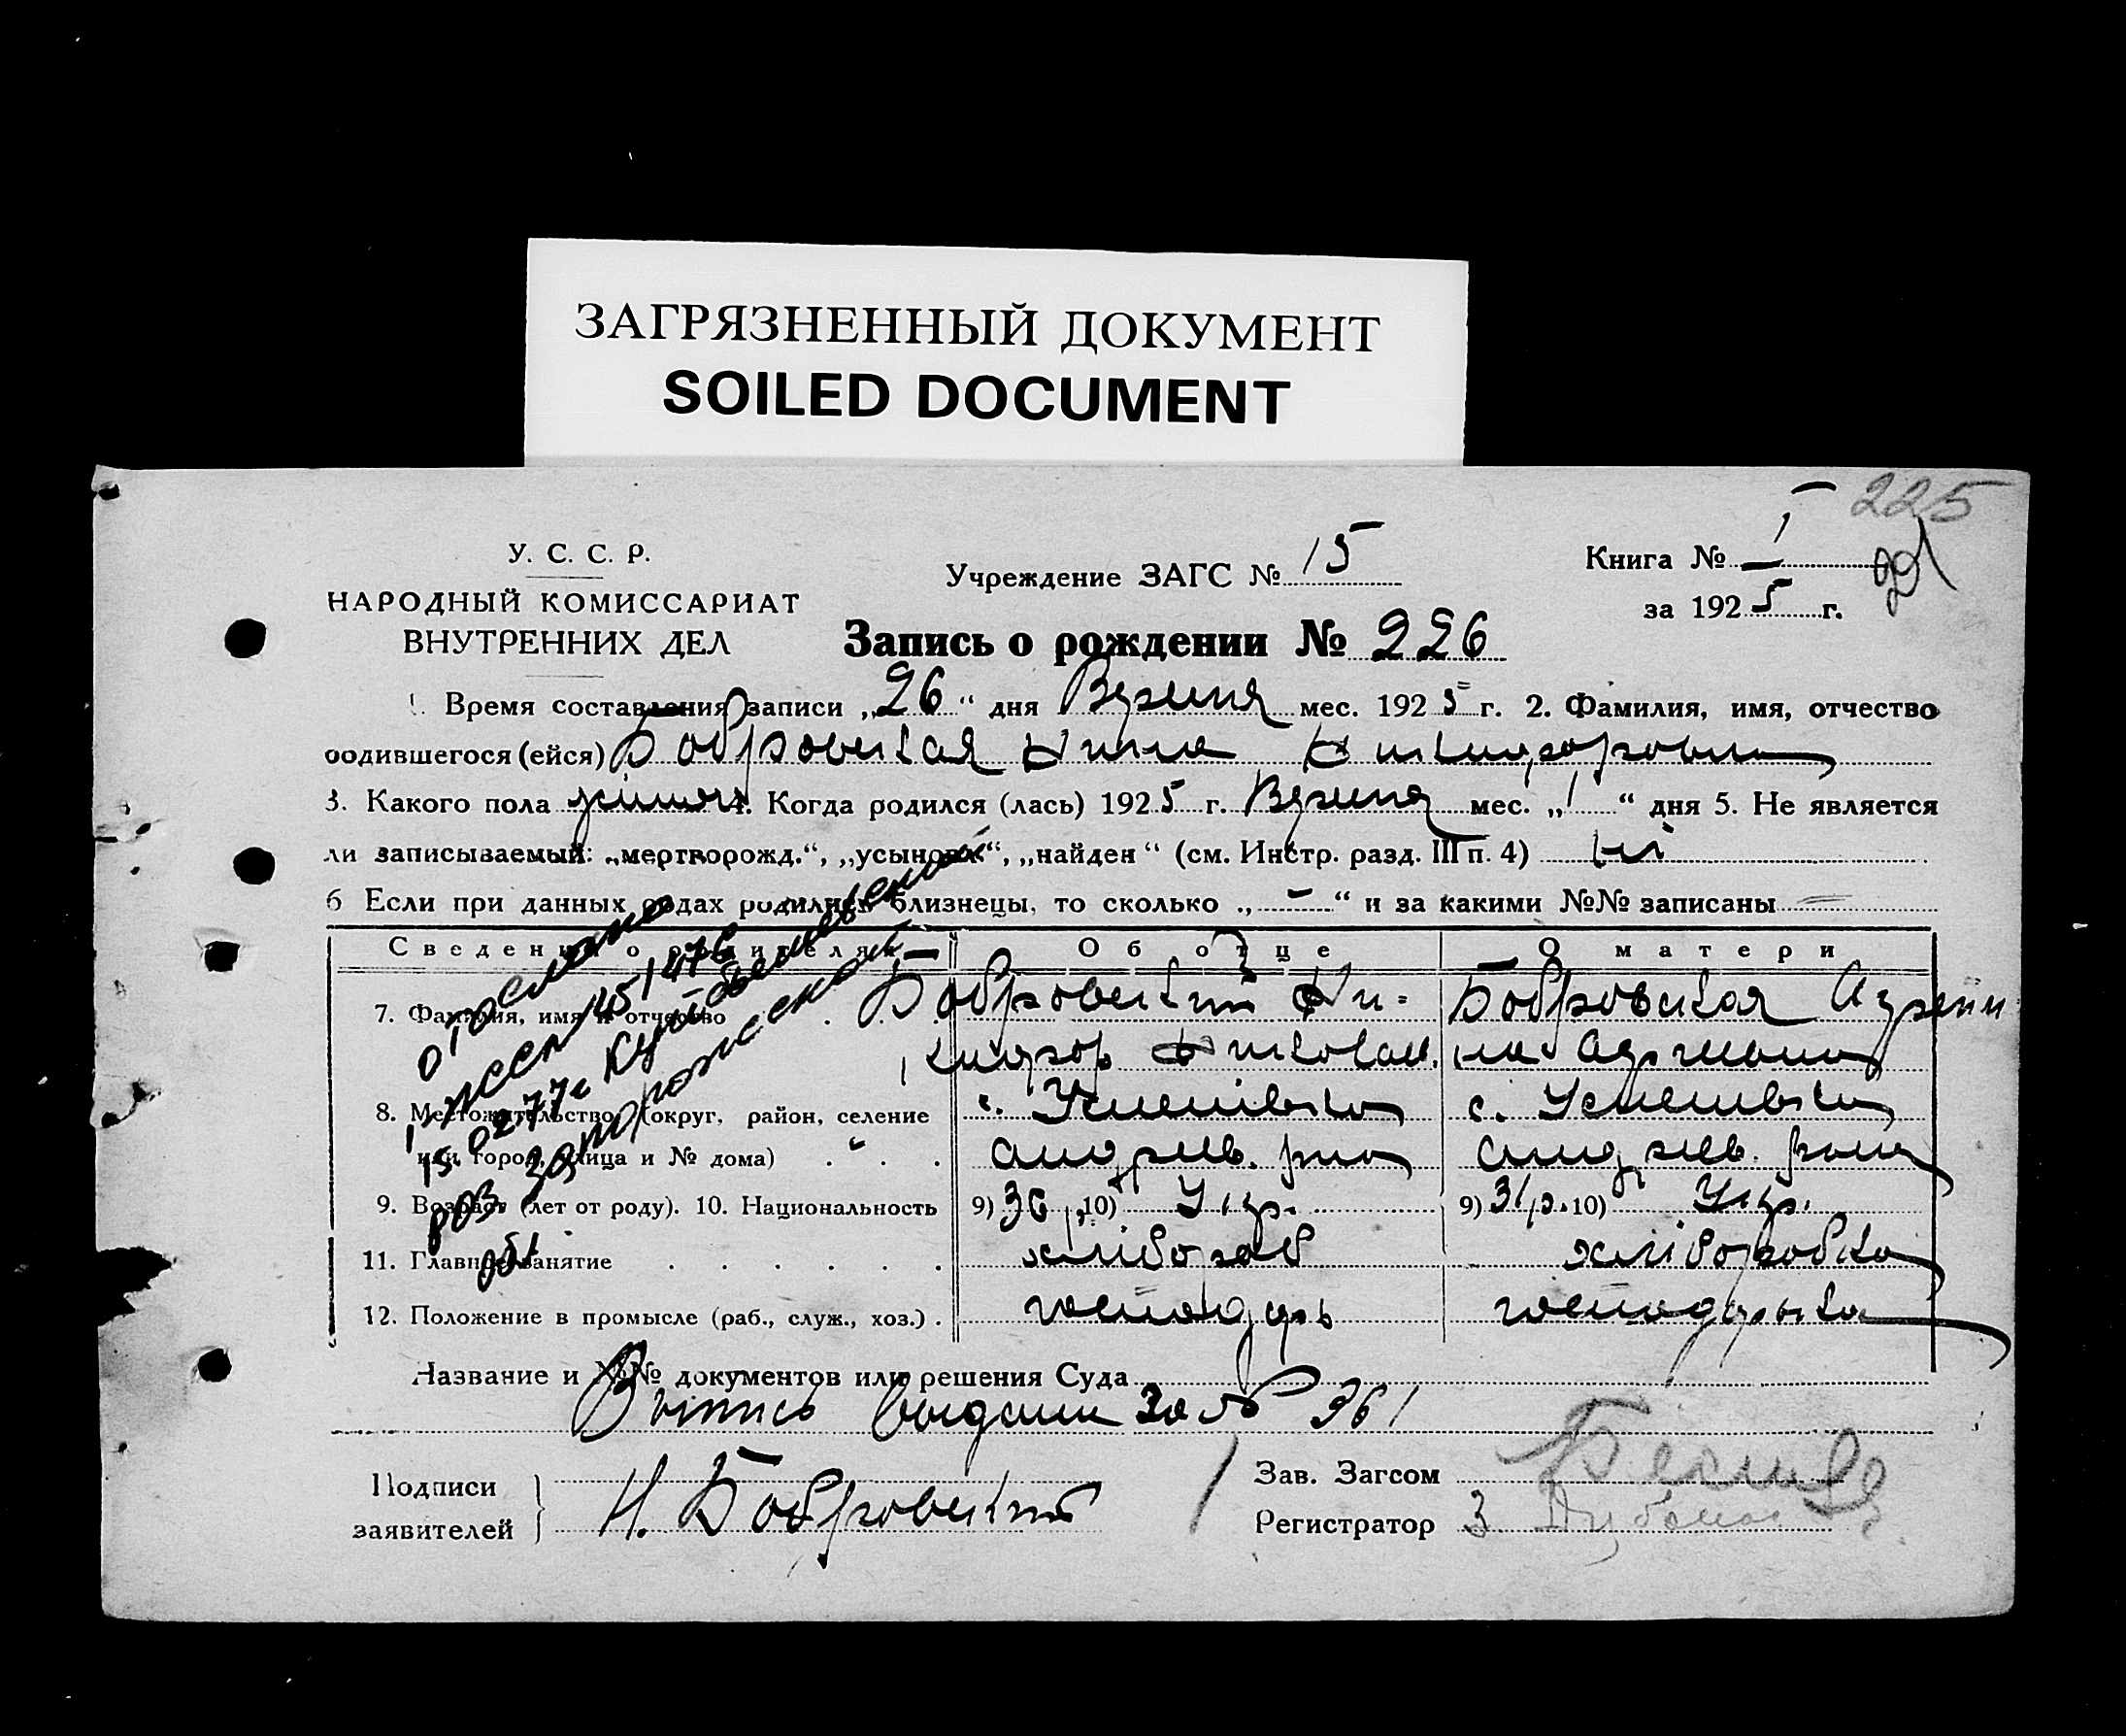 ЗАГРЯЗНЕННЫЙ ДОКУМЕНТ
SOILED DOCUMENT
225
У. С. С. Р.
НАРОДНЫЙ КОМИССАРИАТ
ВНУТРЕННИХ ДЕЛ
Учреждение ЗАГС № 15
Книга № 1
за 1925 г.
Запись о рождении № 226
1. Время составления записи „26“ дня Вересня мес. 1925 г. 2. Фамилия, имя, отчество
родившегося (ейся) Бобровская Нина Никандоровна
3. Какого пола жіночь 4. Когда родился (лась) 1925 г. Вересня мес. „1“ дня 5. Не является
ли записываемый: „мертворожд.“, „усыновл.“, „найден“ (см. Инстр. разд. III п. 4) ні
6 Если при данных родах родились близнецы, то сколько „-“ и за какими №№ записаны
Сведения о родителях Об отце О матери
7. Фамилия, имя и отчество Бобровский Ни- Бобровская
кандор Николаев.
8. Местожительство (округ, район, селение с. Успенівка с. Успенивка
или город, улица и № дома) андреев. района андреев. района
9. Возраст (лет от роду). 10. Национальность 9) 36 10) Укр. 9) 31 р. 10) Укр.
11. Главное занятие хлібороб хліборобка
12. Положение в промысле (раб., служ., хоз.) господарь господарька
Название и №№ документов или решения Суда
Выпись выдана за № 361
Подписи
заявителей
Н. Бобровский
Зав. Загсом
Регистратор
отослано
15.02.77г Куйбышевский
запорожской
обл